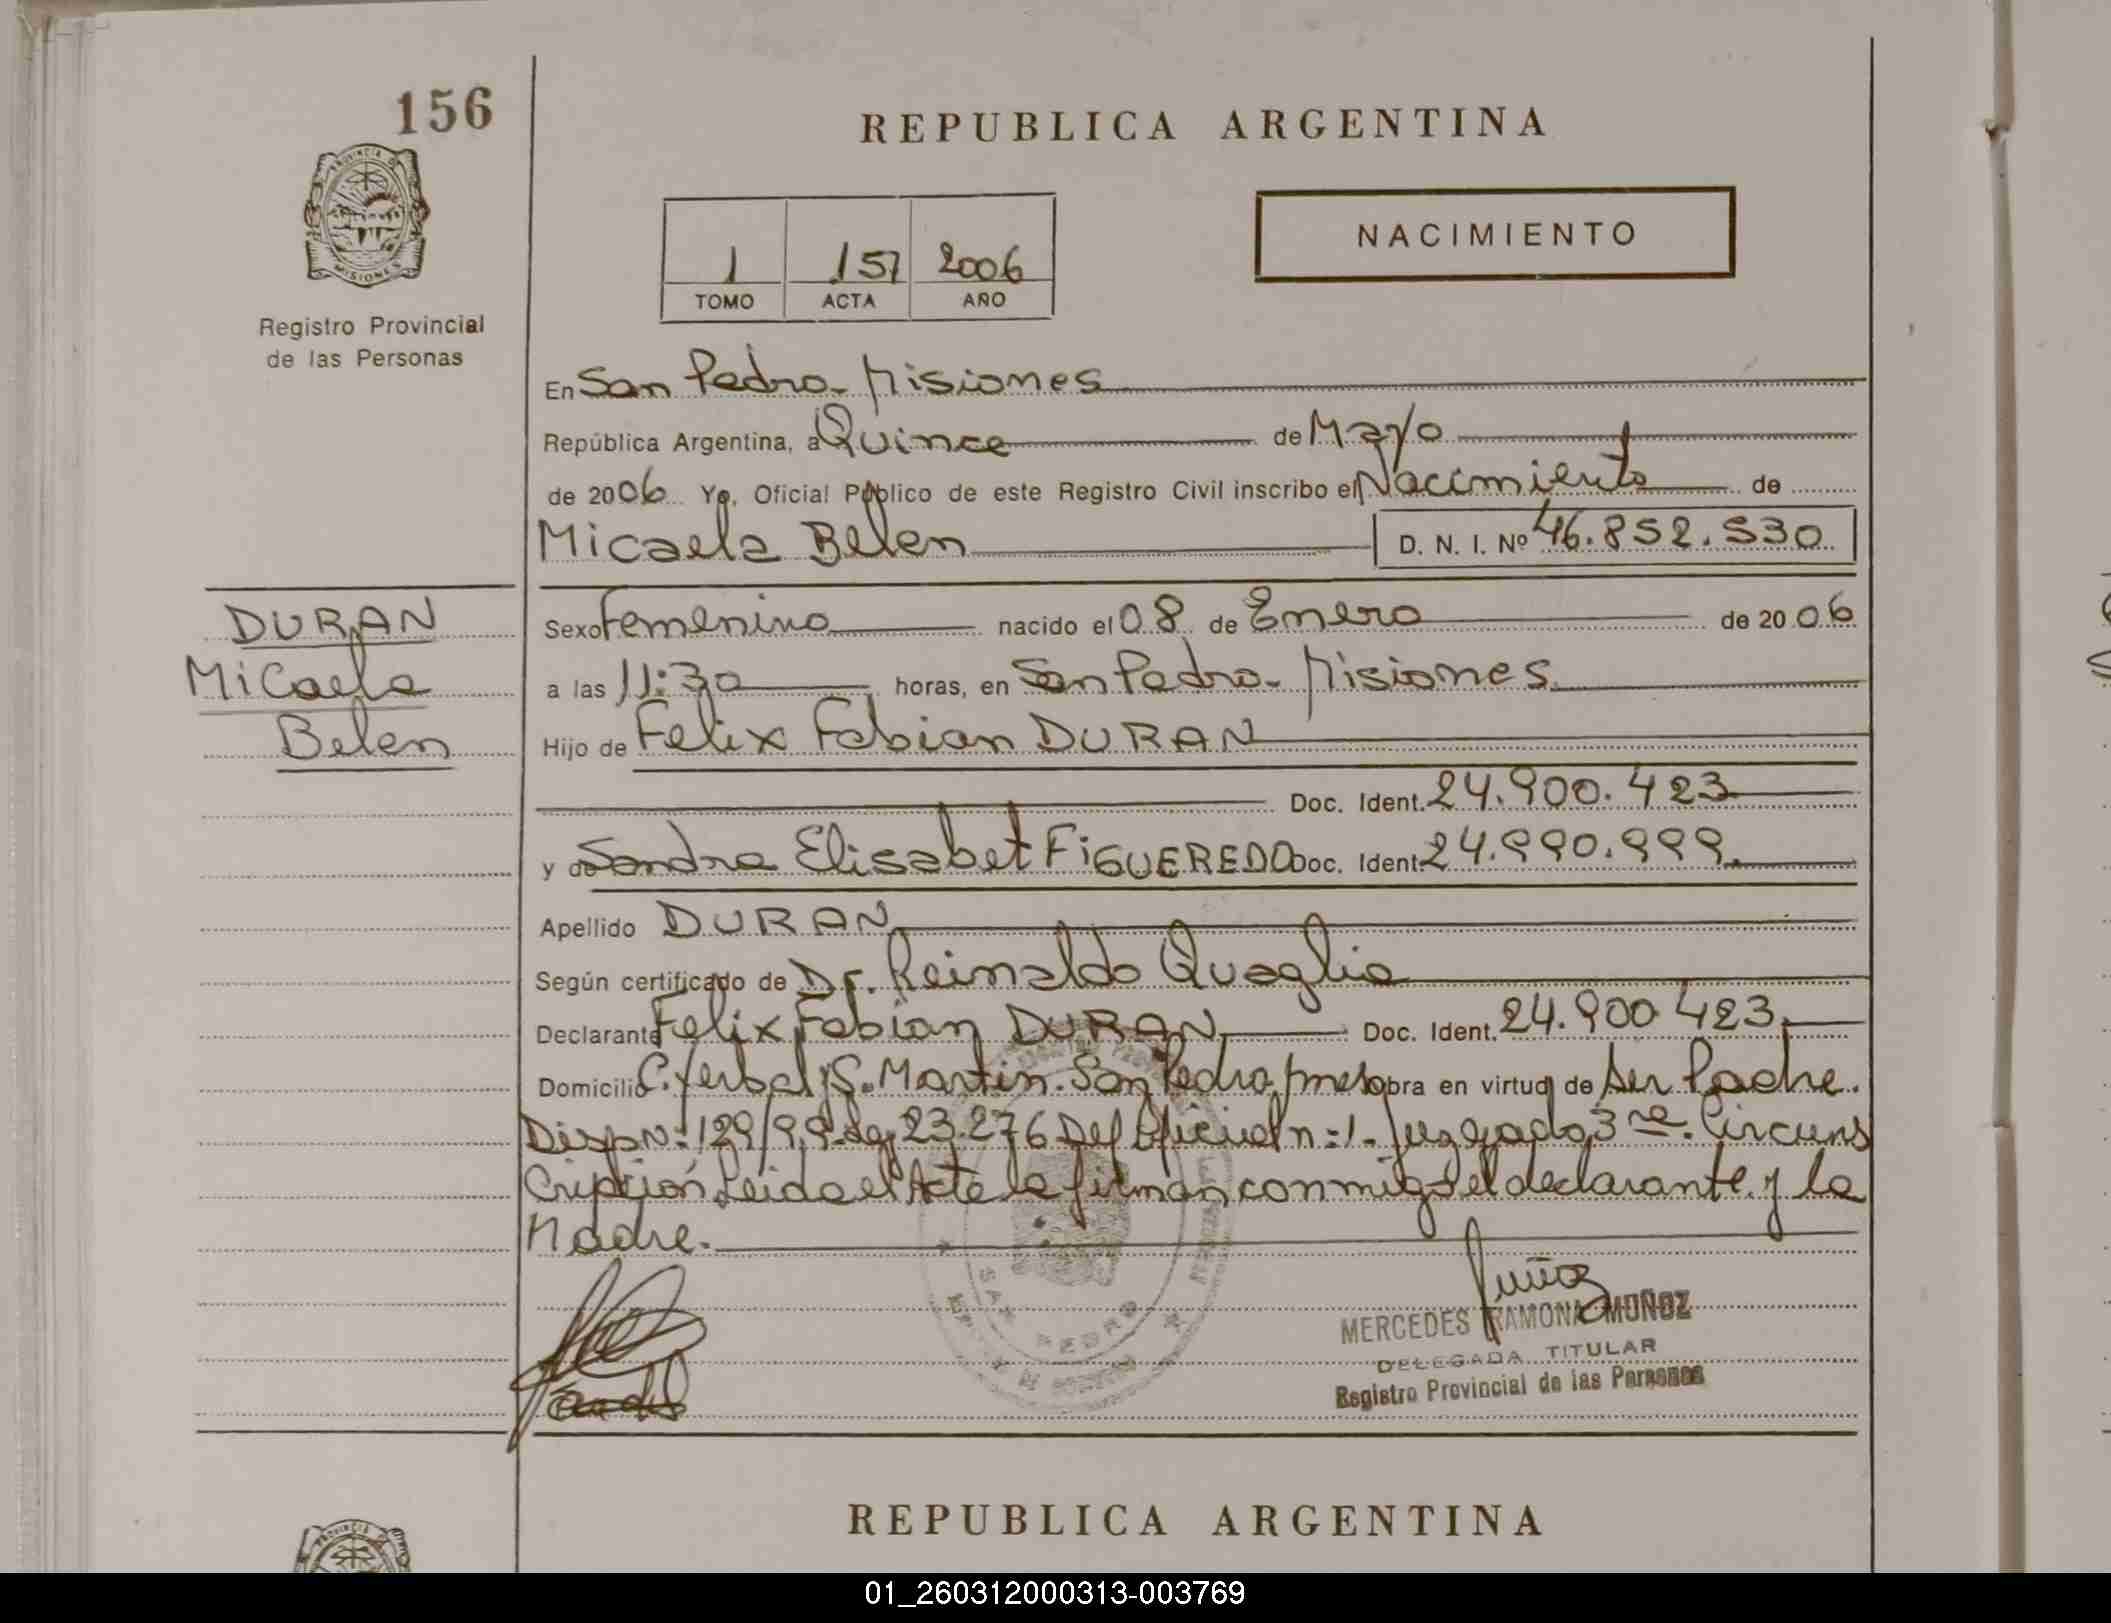 156
REPUBLICA ARGENTINA
PROVINCIA DE
MISIONES
NACIMIENTO
1 157 2006
TOMO ACTA AÑO
Registro Provincial
de las Personas
En San Pedro - Misiones
República Argentina, a Quince de Mayo
de 2006 Yo, Oficial Público de este Registro Civil inscribo el Nacimiento de
Micaela Belen D. N. I. Nº 46.852.530
DURAN
Micaela
Belen
Sexo Femenino nacido el 08 de Enero de 2006
a las 11:30 horas, en San Pedro - Misiones
Hijo de Felix Fabian DURAN
Doc. Ident. 24.900.423
y de Sandra Elisabet FIGUEREDO Doc. Ident. 24.990.999
Apellido DURAN
Según certificado de Dr. Reinaldo Quaglia
Declarante Felix Fabian DURAN Doc. Ident. 24.900.423
Domicilio C. Yerbal y S. Martin. San Pedro, Mnes obra en virtud de ser Padre.
Disp Nº 129/99 23.276 Def Oficial n=1. Juzgado 3ra. Circuns
cripción Leida el Acta la firman conmigo el declarante y la
Madre.
SAN PEDRO
Muñoz
MERCEDES RAMONA MUÑOZ
DELEGADA TITULAR
Registro Provincial de las Personas
REPUBLICA ARGENTINA
PROVINCIA DE
01_260312000313-003769